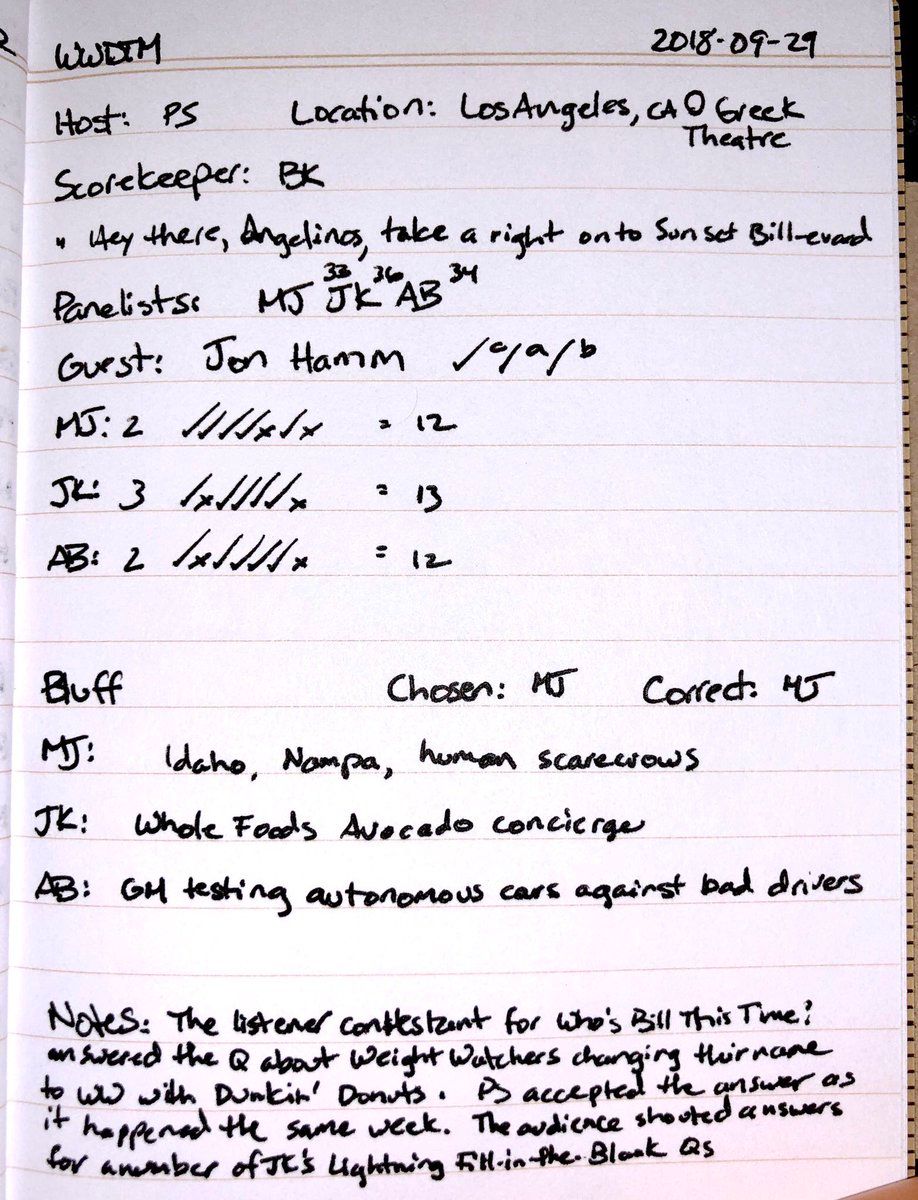 WWDTM 2018-09-29
Host: PS Location: Los Angeles, CA @ Greek
Theatre
Scorekeeper: BK
" Hey there, Angelinos, take a right onto Sunset Bill-evard
Panelists: MJ 33 JK 36 AB 34
Guest: Jon Hamm ✓c/a/b
MJ: 2 ✓✓✓✓x✓x = 12
JK: 3 ✓x✓✓✓✓x = 13
AB: 2 ✓x✓✓✓✓x = 12
Bluff Chosen: MJ Correct: MJ
MJ: Idaho, Nampa, human scarecrows
JK: Whole Foods Avocado concierge
AB: GM testing autonomous cars against bad drivers
Notes: The listener contestant for Who's Bill This Time?
answered the Q about Weight Watchers changing their name
to WW with Dunkin' Donuts. PS accepted the answer as
it happened the same week. The audience shouted answers
for a number of JK's Lightning Fill-in-the-Blank Qs